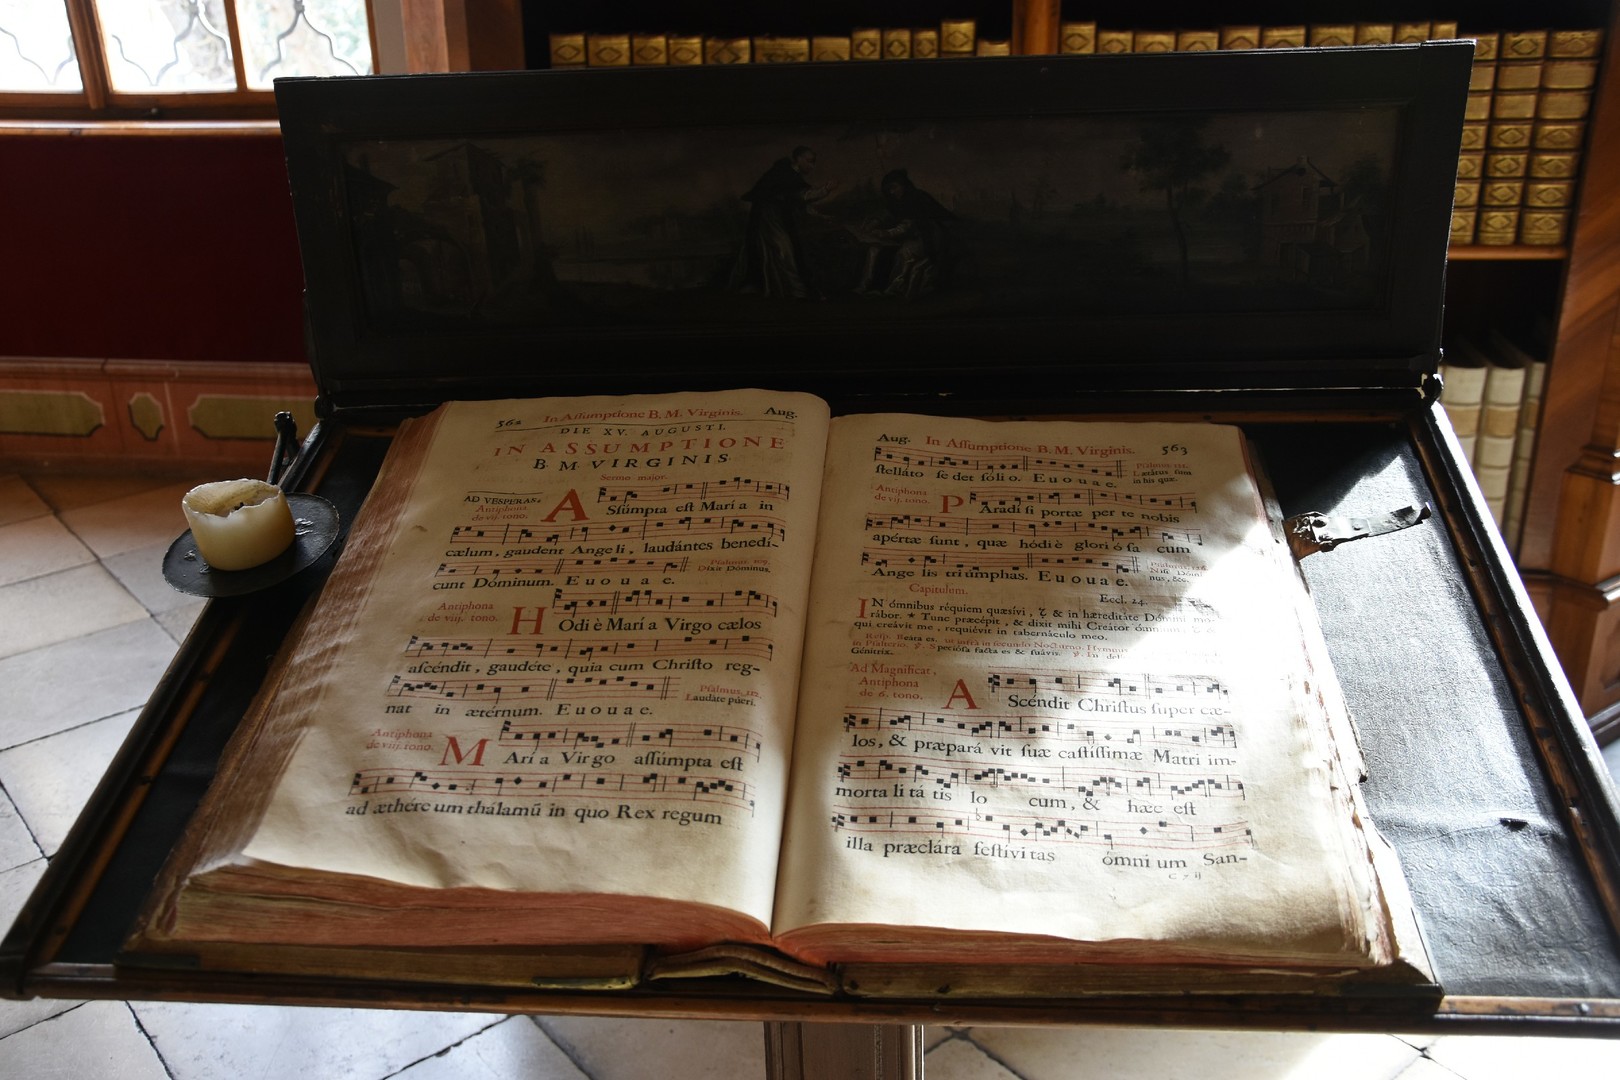 562 In Assumptione B. M. Virginis. Aug.
DIE XV. AUGUSTI.
IN ASSUMPTIONE
B. M. VIRGINIS.
Sermo major.
AD VESPERAS,
Antiphona
de vij. tono.
ASsũmpta est María in
cælum, gaudent Angeli, laudántes benedí-
cunt Dóminum. E u o u a e.
Dixit Dóminus.
Antiphona
de viij. tono.
HOdiè María Virgo cælos
ascéndit, gaudéte, quia cum Christo reg-
nat in ætérnum. E u o u a e.
Psalmus 112.
Laudáte púeri.
Antiphona
de viij. tono.
MAría Virgo assúmpta est
ad æthéreum thálamũ in quo Rex regum
Aug. In Assumptione B. M. Virginis. 563
stelláto sedet sólio. E u o u a e.
Psalmus 121.
Lætátus sum
in his quæ.
Antiphona
de vij. tono.
PAradísi portæ per te nobis
apértæ sunt, quæ hódiè gloriósa cum
Angelis triúmphas. E u o u a e.
Capitulum. Eccl. 24.
IN ómnibus réquiem quæsívi, & in hæreditáte Dómini mo-
rábor. * Tunc præcépit, & dixit mihi Creátor ómnium, &
qui creávit me, requiévit in tabernáculo meo.
Resp. Beáta es. ut infrà in secundo Nocturno. Hymnus
℣. Speciósa facta es & suávis. ℟. In
Génitrix.
Ad Magnificat,
Antiphona
de 6. tono.
AScéndit Christus super cæ-
los, & præparávit suæ castíssimæ Matri im-
mortalitátis locum, & hæc est
illa præclára festívitas ómnium San-